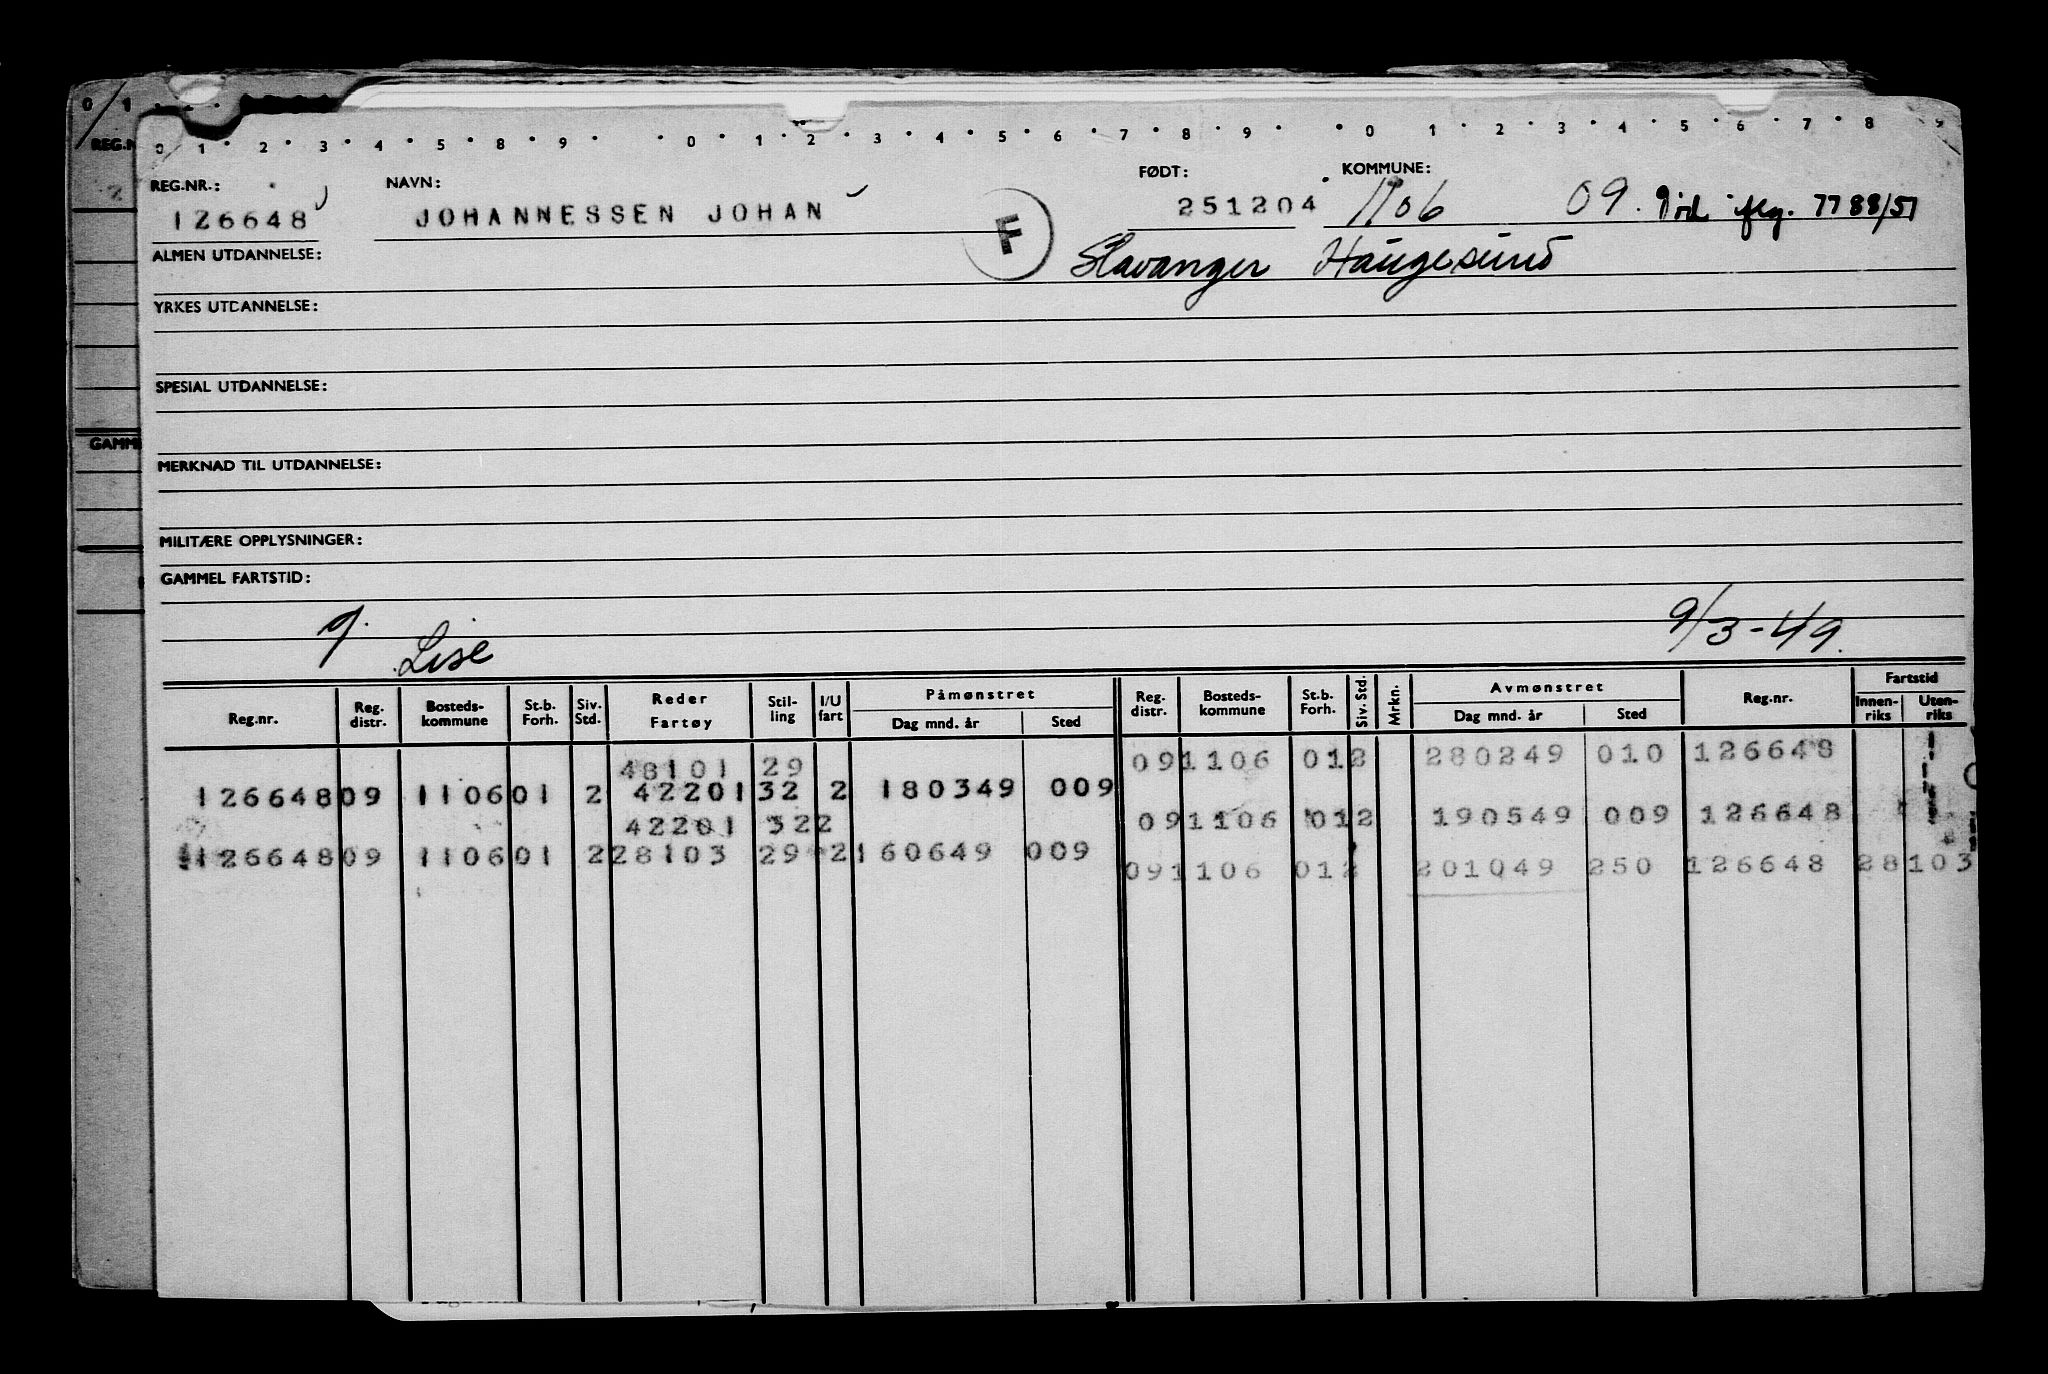 0 1
REG.N
GAMM
0 1 2 3 4 5 6 8 9 0 1 2 3 4 5 6 7 8 9 0 1 2 3 4 5 6 7 8 9
REG.NR.: NAVN: FØDT: KOMMUNE:
126648 JOHANNESSEN JOHAN F 251204 1106 09. Død iflg. 7788/51
ALMEN UTDANNELSE: Stavanger Haugesund
YRKES UTDANNELSE:
SPESIAL UTDANNELSE:
MERKNAD TIL UTDANNELSE:
MILITÆRE OPPLYSNINGER:
GAMMEL FARTSTID:
g. Lise 9/3-49.
Reg.nr. Reg. distr. Bosteds-kommune St.b. Forh. Siv. Std. Reder Fartøy Stil-ling I/U fart Påmønstret Dag mnd. år Sted Reg. distr. Bosteds-kommune St.b. Forh. Siv. Std. Mrkn. Avmønstret Dag mnd. år Sted Reg.nr. Fartstid Innen-riks Uten-riks
48101 29 09 1106 01 2 280249 010 126648
126648 09 1106 01 2 42201 32 2 180349 009
42201 32 2 09 1106 01 2 190549 009 126648
126648 09 1106 01 2 28103 29 2 160649 009
09 1106 01 2 201049 250 126648 28103